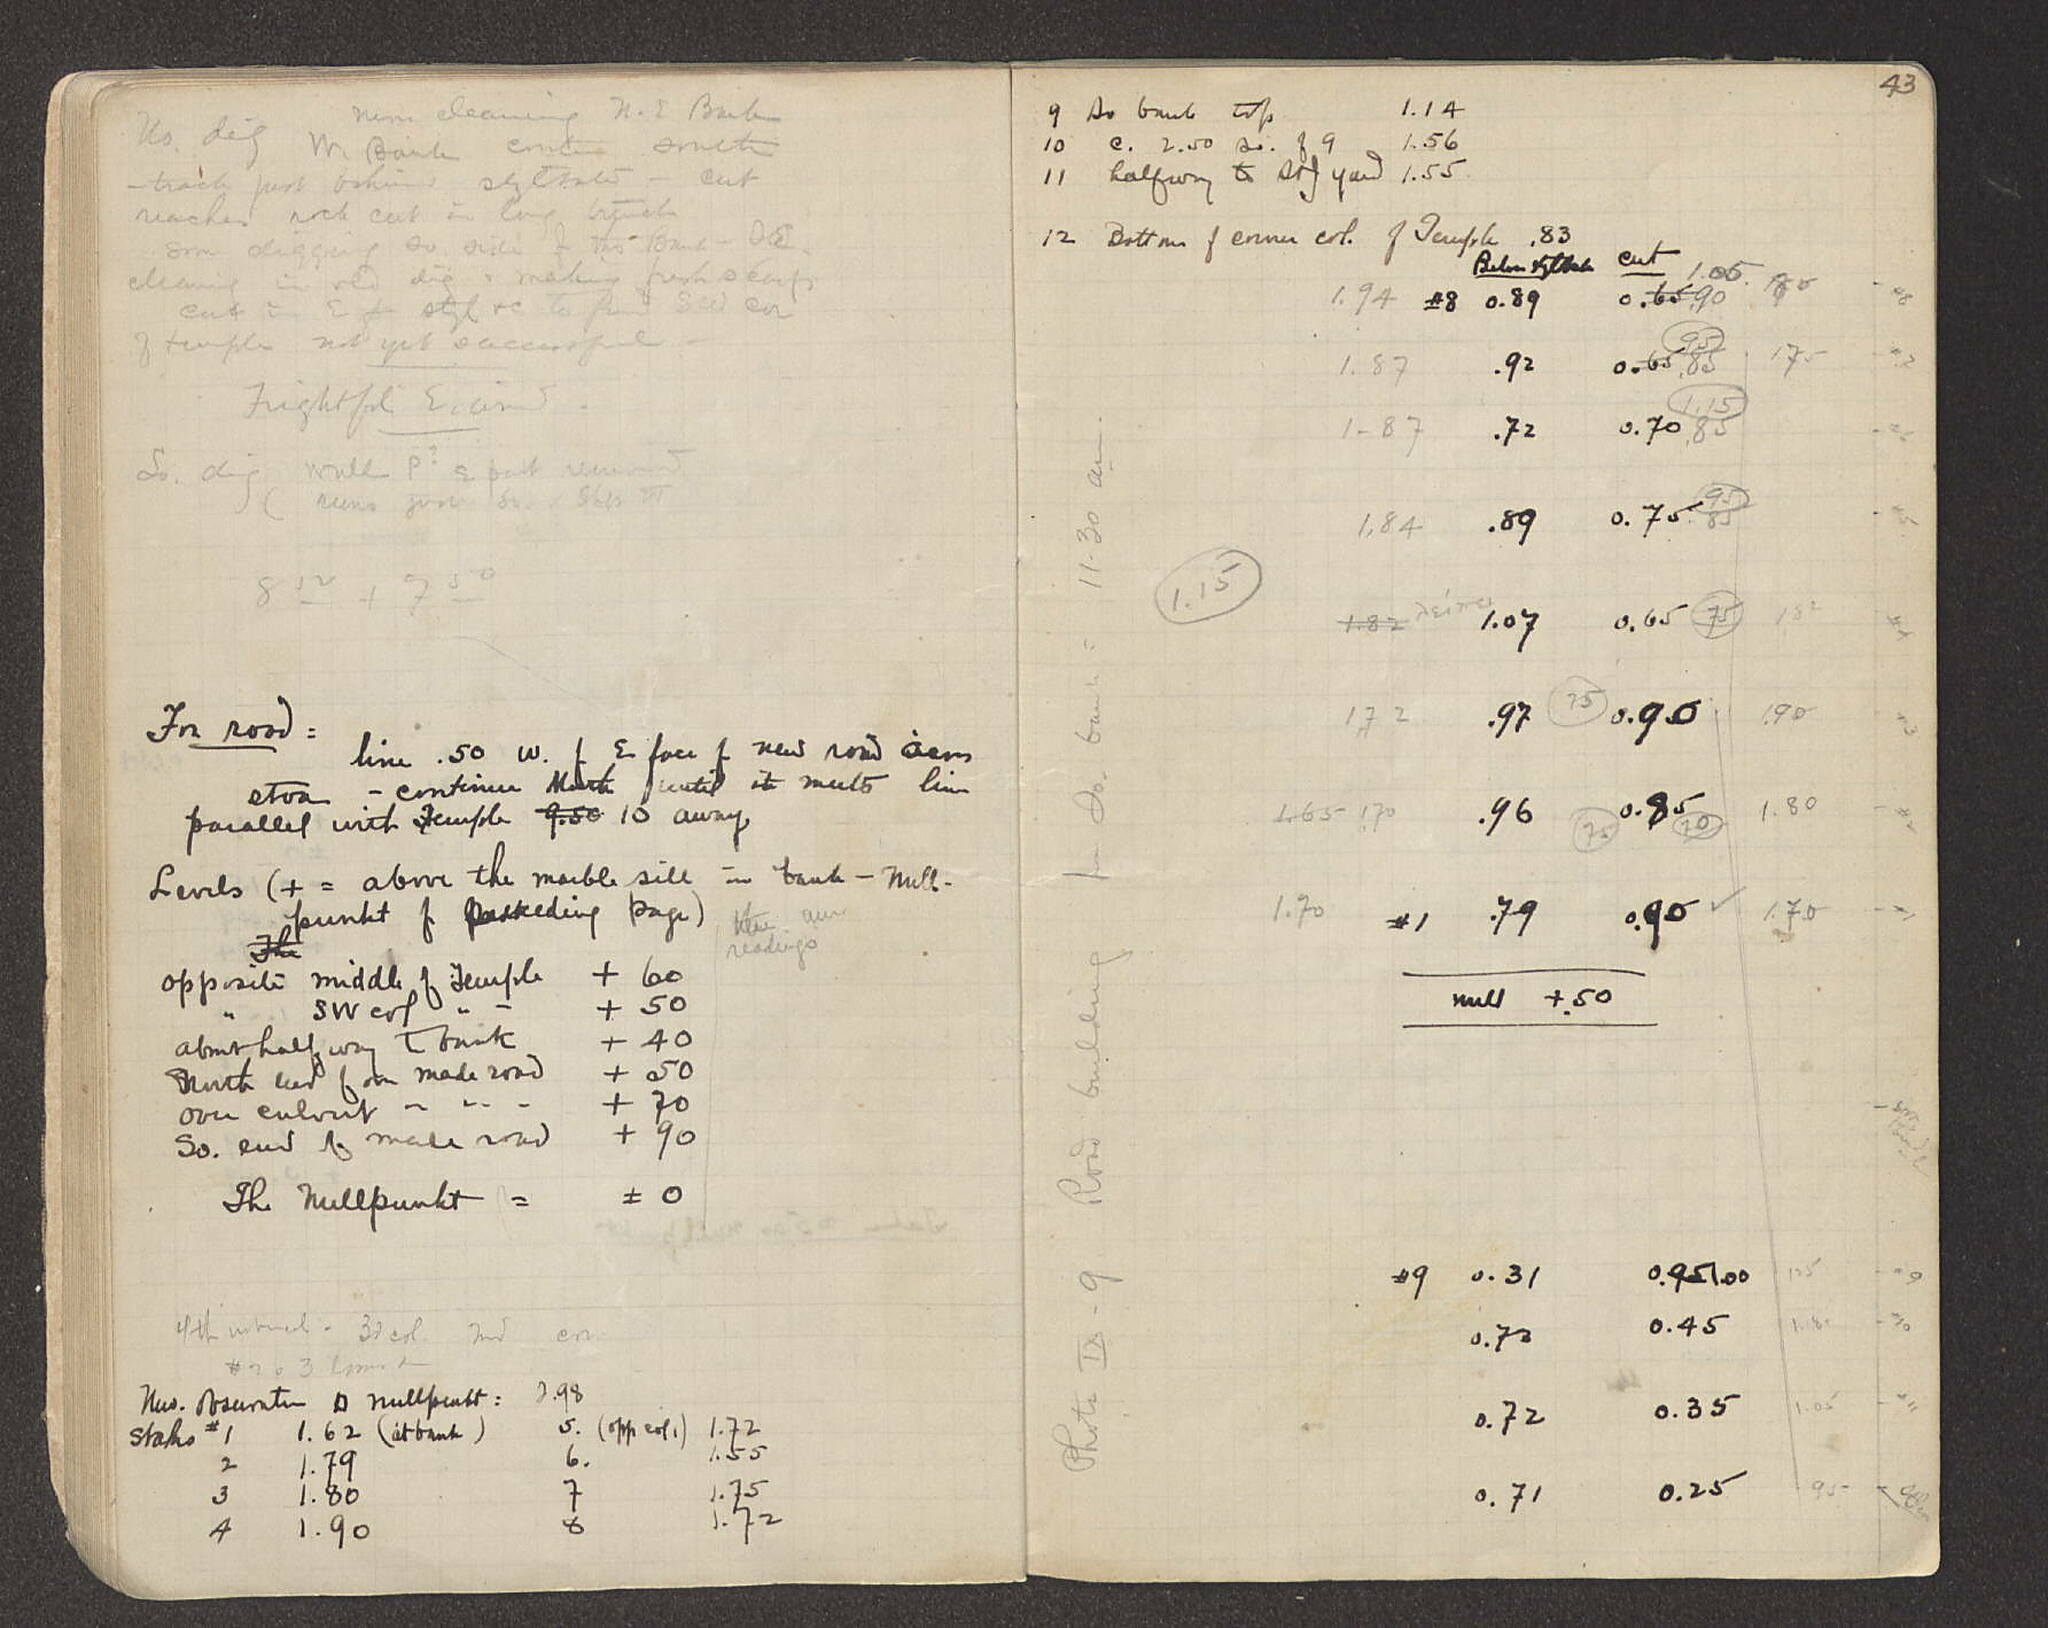 No. dig
now cleaning N. E Bank
W. Bank south
- track just behind stylobate - cut
reaches rock cut in long trench
some digging So side of this Bank -
cleaning in old dig + making fresh scarps
cut in E of styl to find SW cor
of temple not yet successful -
Frightful E. wind.
So. dig wall P? E part removed
runs So.
8 52 + 7 50
For road =
line .50 W. of E face of new road across
stoa - continue North until it meets line
parallel with Temple 9.50 10 away
Levels (+ = above the marble sill in bank - Null-
punkt of preceding page)
The
readings
opposite middle of Temple + 60
" SW col " - + 50
about halfway to bank + 40
North end of our made road + 50
over culvert - " - - + 70
So. end of made road + 90
The Nullpunkt = ± 0
3d col.
New. Observation nullpunkt: 2.98
Stakes #1 1.62 (at bank) 5. (opp col.) 1.72
2 1.79 6. 1.55
3 1.80 7 1.75
4 1.90 8 1.72
43
9 So bank top 1.14
10 c. 2.50 so. of 9 1.56
11 halfway to yard 1.55
12 Bottom of corner col. of Temple .83
Below stylobate cut 1.05
1.94 #8 0.89 0.65 .90 #8
95
1.87 .92 0.65 .85 175
1.15
1-87 .72 0.70 .85
95
1.84 .89 0.75 .85
1.15
1.82 λείπει 1.07 0.65 75 182
172 .97 75 0.90 190 #3
1.65 170 .96 75 0.85 70 1.80 #2
1.70 #1 .79 0.90 ✓ 1.70 #1
null +.50
#9 0.31 0.95 1.00 125 #9
0.72 0.45 #10
0.72 0.35 1.05 #11
0.71 0.25 95-
Photo IX - 9 Road building from So. bank = 11-30 am.